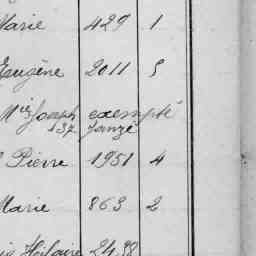 Marie 429 1
Eugène 2011 5
Mie Joseph exempté
137 Janzé
Pierre 1951 4
Marie 863 2
Hilaire 2438